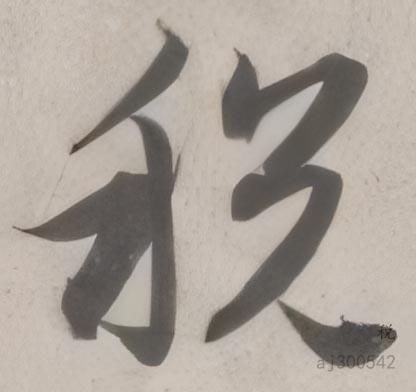 税
税
aj300542